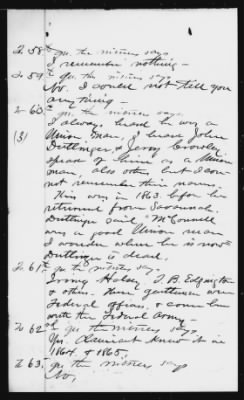 2. 58th qu. the witness says
I remember nothing —
2. 59th qu. the witness says
No. I could not tell you
anything —
2. 60th qu. the witness says.
(3) I always heard he was a
Union man, I heard John
Dittlinger, & Jerry Crowley
speak of him as a Union
man, also others but I can-
not remember their names.
This was in 1863 before his
retirement from
Dittlinger said "McConnell
was a good Union man
I wonder where he is now"
Dittlinger is dead.
2. 61st qu the witness says,
Irving Halsey, T. B. Edgington
& others. These gentlemen were
Federal Officers & came here
with the Federal Army —
2. 62nd qu the witness says
Yes. Claimant knew it in
1864 & 1865.
2. 63, qu. the witness says
No,